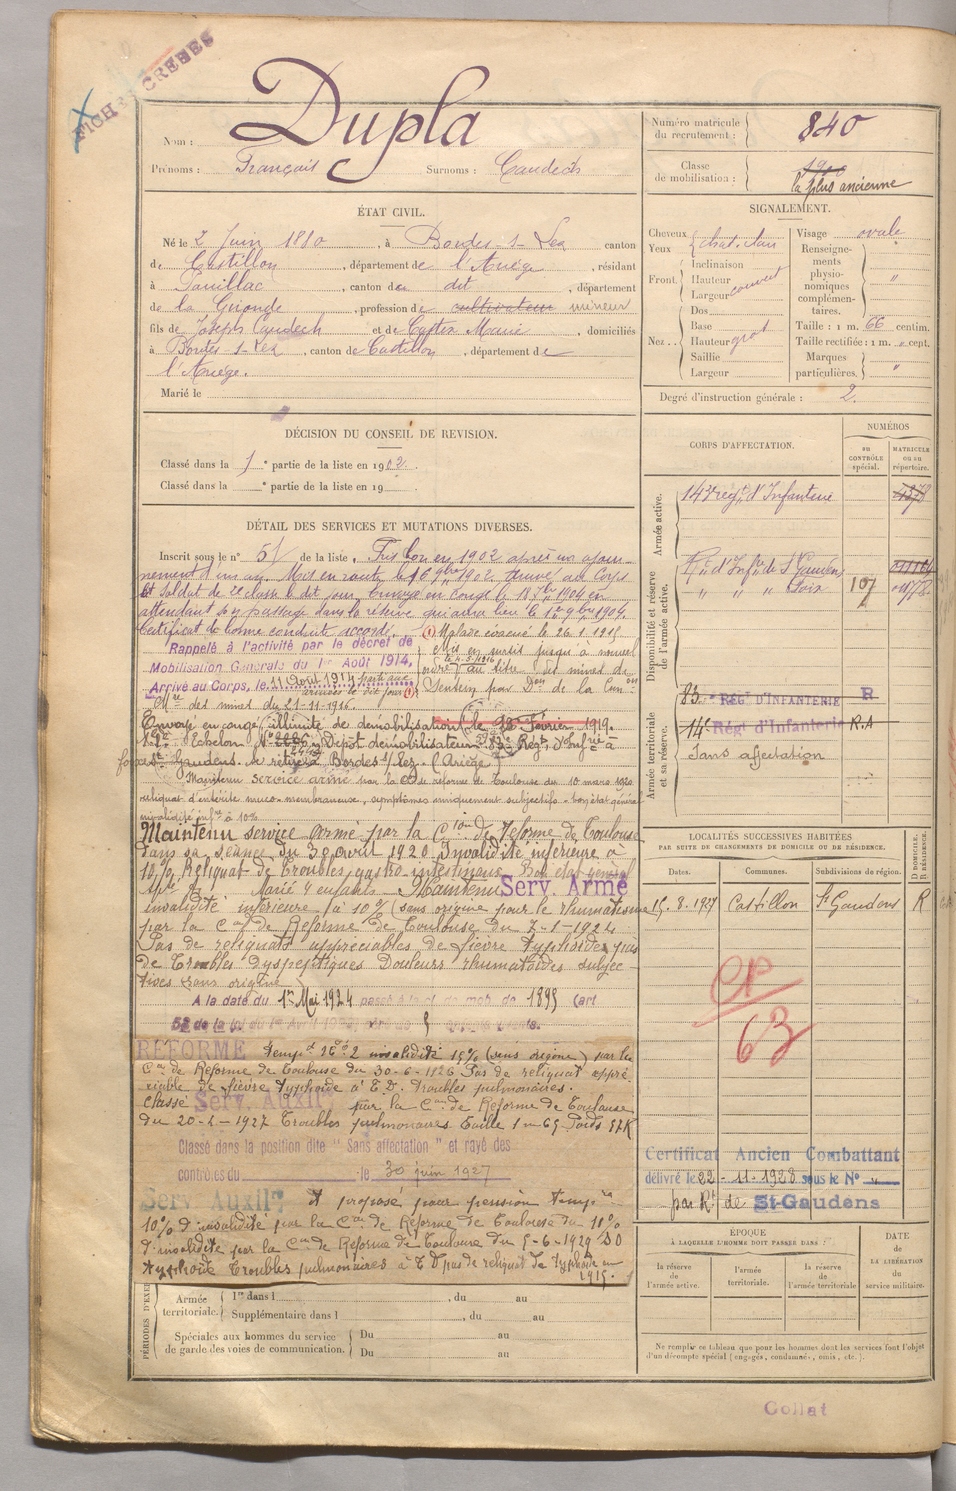 FICHE CREBES
Nom : Dupla
Prénoms : François Surnoms : Caudech
Numéro matricule du recrutement : 840
Classe de mobilisation : la plus ancienne
ÉTAT CIVIL.
Né le 2 Juin 1880, à Bordes-s-Lez canton
de Castillon, département de l'Ariége, résidant
à Pauillac, canton du dit, département
de la Gironde, profession de cultivateur mineur
fils de Joseph Caudech et de Caster Marie, domiciliés
à Bordes-s-Lez, canton de Castillon, département de
l'Ariége.
Marié le
SIGNALEMENT.
Cheveux
Yeux chat. clair
Front. Inclinaison
Hauteur
Largeur couvert
Nez. Dos
Base
Hauteur gros
Saillie
Largeur
Visage ovale
Renseignements physionomiques complémentaires. "
Taille : 1 m. 66 centim.
Taille rectifiée : 1 m. " cent.
Marques particulières. "
Degré d'instruction générale : 2.
DÉCISION DU CONSEIL DE REVISION.
Classé dans la 1e partie de la liste en 1902.
Classé dans la e partie de la liste en 19
DÉTAIL DES SERVICES ET MUTATIONS DIVERSES.
Inscrit sous le n° 51 de la liste. Pris bon en 1902 après un ajour-
nement d'un an. Mis en route le 16 9bre 1902 Arrivé au Corps
et Soldat de 2e classe le dit jour Envoyé en congé le 18 7bre 1904 en
attendant son passage dans la réserve qui aura lieu le 1er 9bre 1904.
Certificat de bonne conduite accordé.
Rappelé à l'activité par le décret de
Mobilisation Générale du 1er Août 1914,
Arrivé au Corps, le 11 Août 1914
(1) Malade évacué le 26-1-1915
Mis en sursis jusqu'à nouvel
ordre au titre des mines de
Sentein par Don de la Con on
Mre des mines du 21-11-1916.
Envoyé en congé illimité de démobilisation le 28 Février 1919.
Echelon N° Dépôt démobilisateur 83e Régt d'Infrie à
St Gaudens. Se retire à Bordes s/Lez (Ariège)
Maintenu service armé par la Con de réforme de Toulouse du 10 mars 1920
reliquat d'entérite muco-membraneuse, symptômes uniquement subjectifs - bon état général
invalidité infre à 10%
Maintenu service armé par la Cion de Réforme de Toulouse
dans sa séance du 30 avril 1920 Invalidité inférieure à
10% Reliquat de troubles gastro-intestinaux Bon état général
Marié 4 enfants - Maintenu Serv. Armé
invalidité inférieure à 10% (sans origine pour le rhumatisme
par la Con de Réforme de Toulouse du 7-1-1924
Pas de reliquats appréciables de fièvre typhoïde, pas
de troubles dyspeptiques Douleurs rhumatoïdes subjec-
tives sans origine
A la date du 1er Mai 1924 passé à la cl. de mob. de 1895 (art
58 de la loi du 1er Avril 1923, père de 5 enfants vivants.
REFORMÉ tempre 2 invalidité 15% (sans origine) par la
Con de Réforme de Toulouse du 30-6-1926 Pas de reliquat appré-
ciable de fièvre typhoïde à T.D. troubles pulmonaires.
Classé Serv. Auxil. par la Con de Réforme de Toulouse
du 20-2-1927 Troubles pulmonaires Taille 1m65 Poids 57K
Classé dans la position dite "Sans affectation" et rayé des
contrôles du le 30 juin 1927
Serv. Auxil. A proposé pour pension tempre
10% d'invalidité par la Con de Réforme de Toulouse du 10%
d'invalidité par la Con de Réforme de Toulouse du 5-6-1929 DO
typhoïde Troubles pulmonaires à T D pas de reliquat de typhoïde en
1915.
PÉRIODES D'EXE
Armée territoriale. 1re dans l , du au
Supplémentaire dans l , du au
Spéciales aux hommes du service de garde des voies de communication. Du au
Du au
CORPS D'AFFECTATION.
NUMÉROS
AU CONTRÔLE spécial.
MATRICULE ou au répertoire.
Armée active.
143e régt d'Infanterie 1378
Disponibilité et réserve de l'armée active.
Rt d'Infie de St Gaudens
" " " Foix 107
Armée territoriale et sa réserve.
83e RÉGt D'INFANTERIE R
14e Régt d'Infanterie R.A
Sans affectation
LOCALITÉS SUCCESSIVES HABITÉES
PAR SUITE DE CHANGEMENTS DE DOMICILE OU DE RÉSIDENCE.
Dates. Communes. Subdivisions de région. D DOMICILE, R RÉSIDENCE.
15.8.1927 Castillon St Gaudens R
CP
63
Certificat Ancien Combattant
délivré le 22-11-1928 sous le N° "
par Rt de St-Gaudens
ÉPOQUE
À LAQUELLE L'HOMME DOIT PASSER DANS :
la réserve de l'armée active.
l'armée territoriale.
la réserve de l'armée territoriale
DATE de LA LIBÉRATION du service militaire.
Ne remplir ce tableau que pour les hommes dont les services font l'objet
d'un décompte spécial (engagés, condamnés, omis, etc.).
Collat